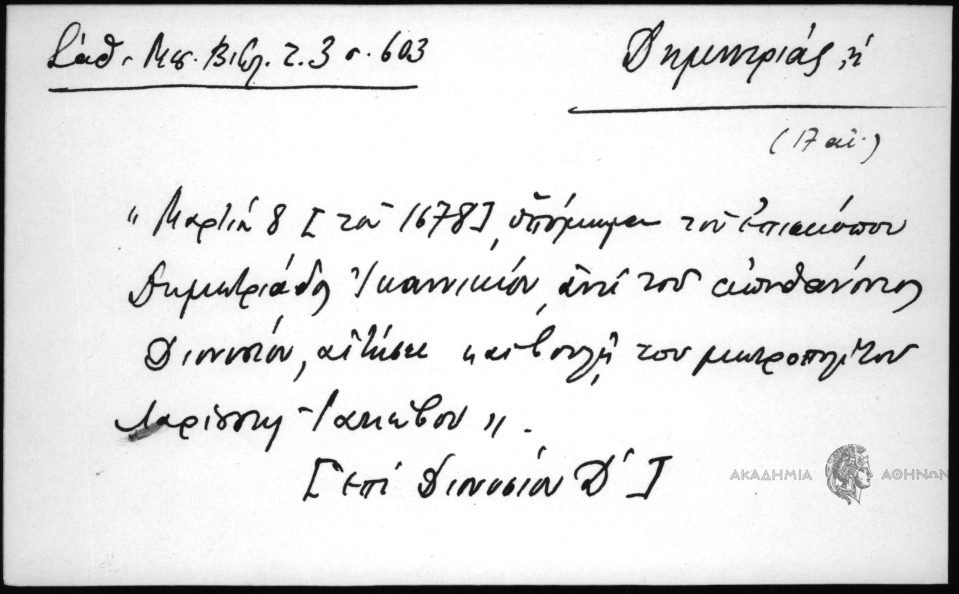 Σάθ. Μεσ. Βιβλ. τ. 3 σ. 603
Δημητριάς, ἡ
(17 αἰ.)
"Μαρτίῳ 8 [τοῦ 1678], ὑπόμνημα τοῦ ἐπισκόπου
Δημητριάδος Ἰωαννικίου, ἀντὶ τοῦ ἀποθανόντος
Διονυσίου, αἰτήσει καὶ βουλῇ τοῦ μητροπολίτου
Λαρίσσης Ἰακώβου".
[ἐπὶ Διονυσίου Δ΄]
ΑΚΑΔΗΜΙΑ ΑΘΗΝΩΝ